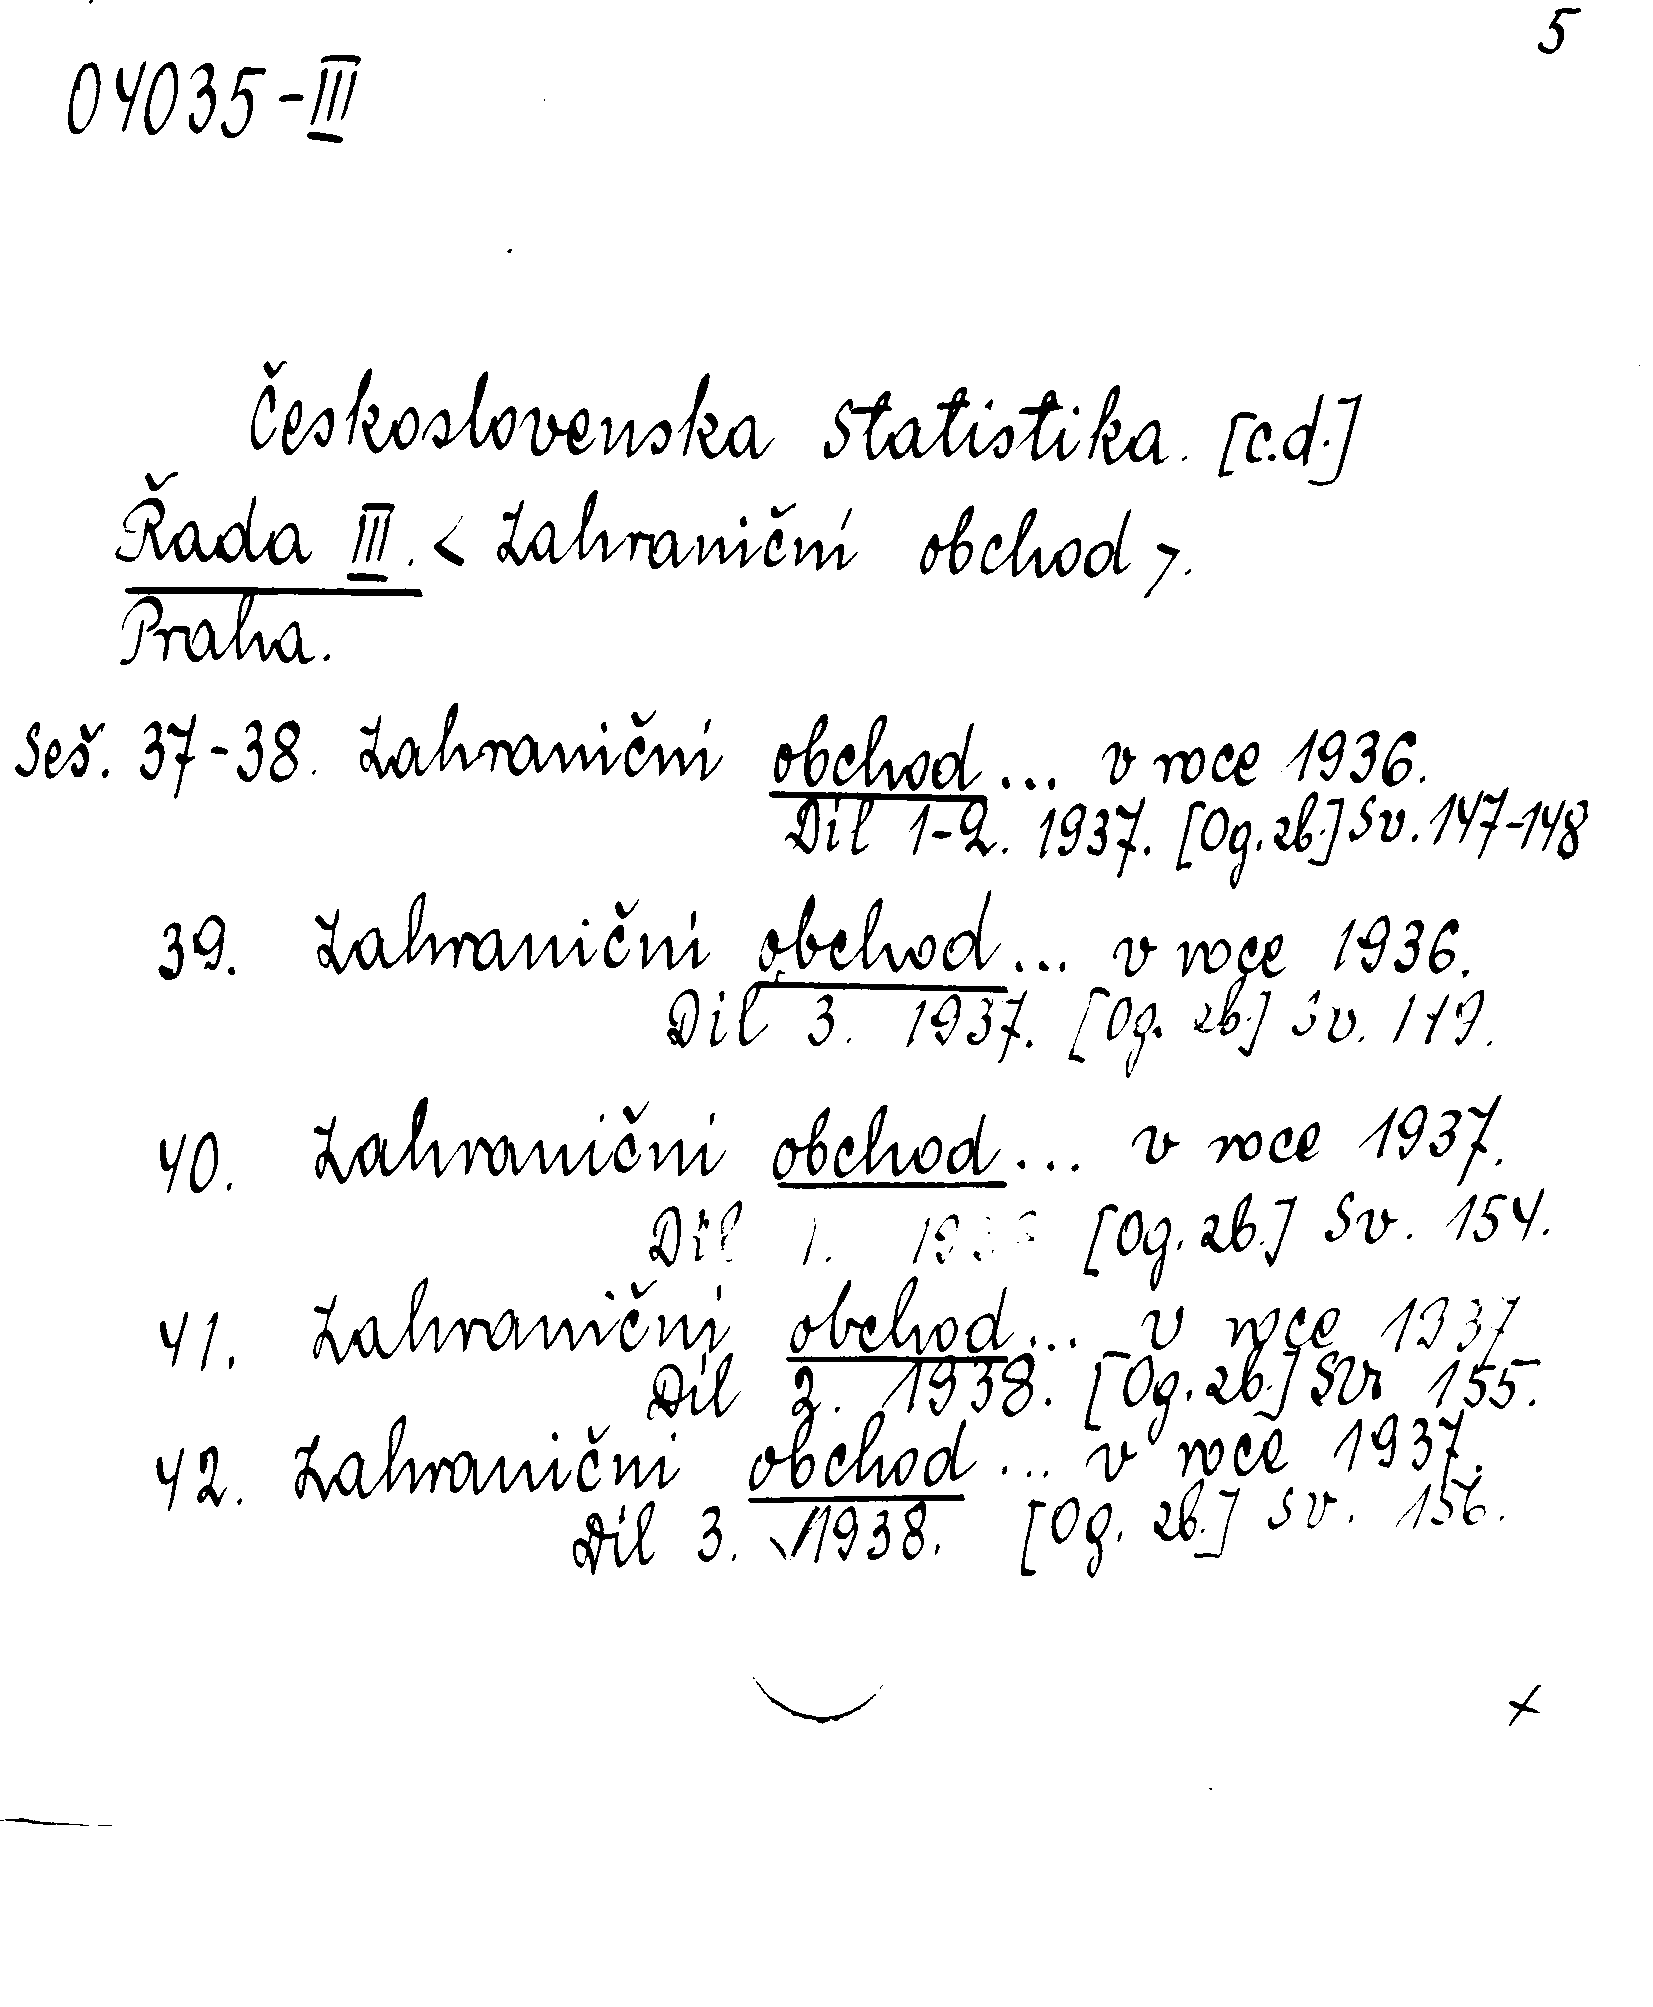 5
04035-III
Československa statistika. [c.d.]
Řada III. < Zahraniční obchod >.
Praha.
Seš. 37-38. Zahraniční obchod... v roce 1936.
Díl 1-2. 1937. [Og. zb.] Sv. 147-148
39. Zahraniční obchod... v roce 1936.
Díl 3. 1937. [Og. zb.] Sv. 149.
40. Zahraniční obchod... v roce 1937.
Díl 1. [Og. zb.] Sv. 154.
41. Zahraniční obchod... v roce 1937
Díl 2. 1938. [Og. zb.] Sv. 155.
42. Zahraniční obchod... v roce 1937.
Díl 3. 1938. [Og. zb.] Sv. 156.